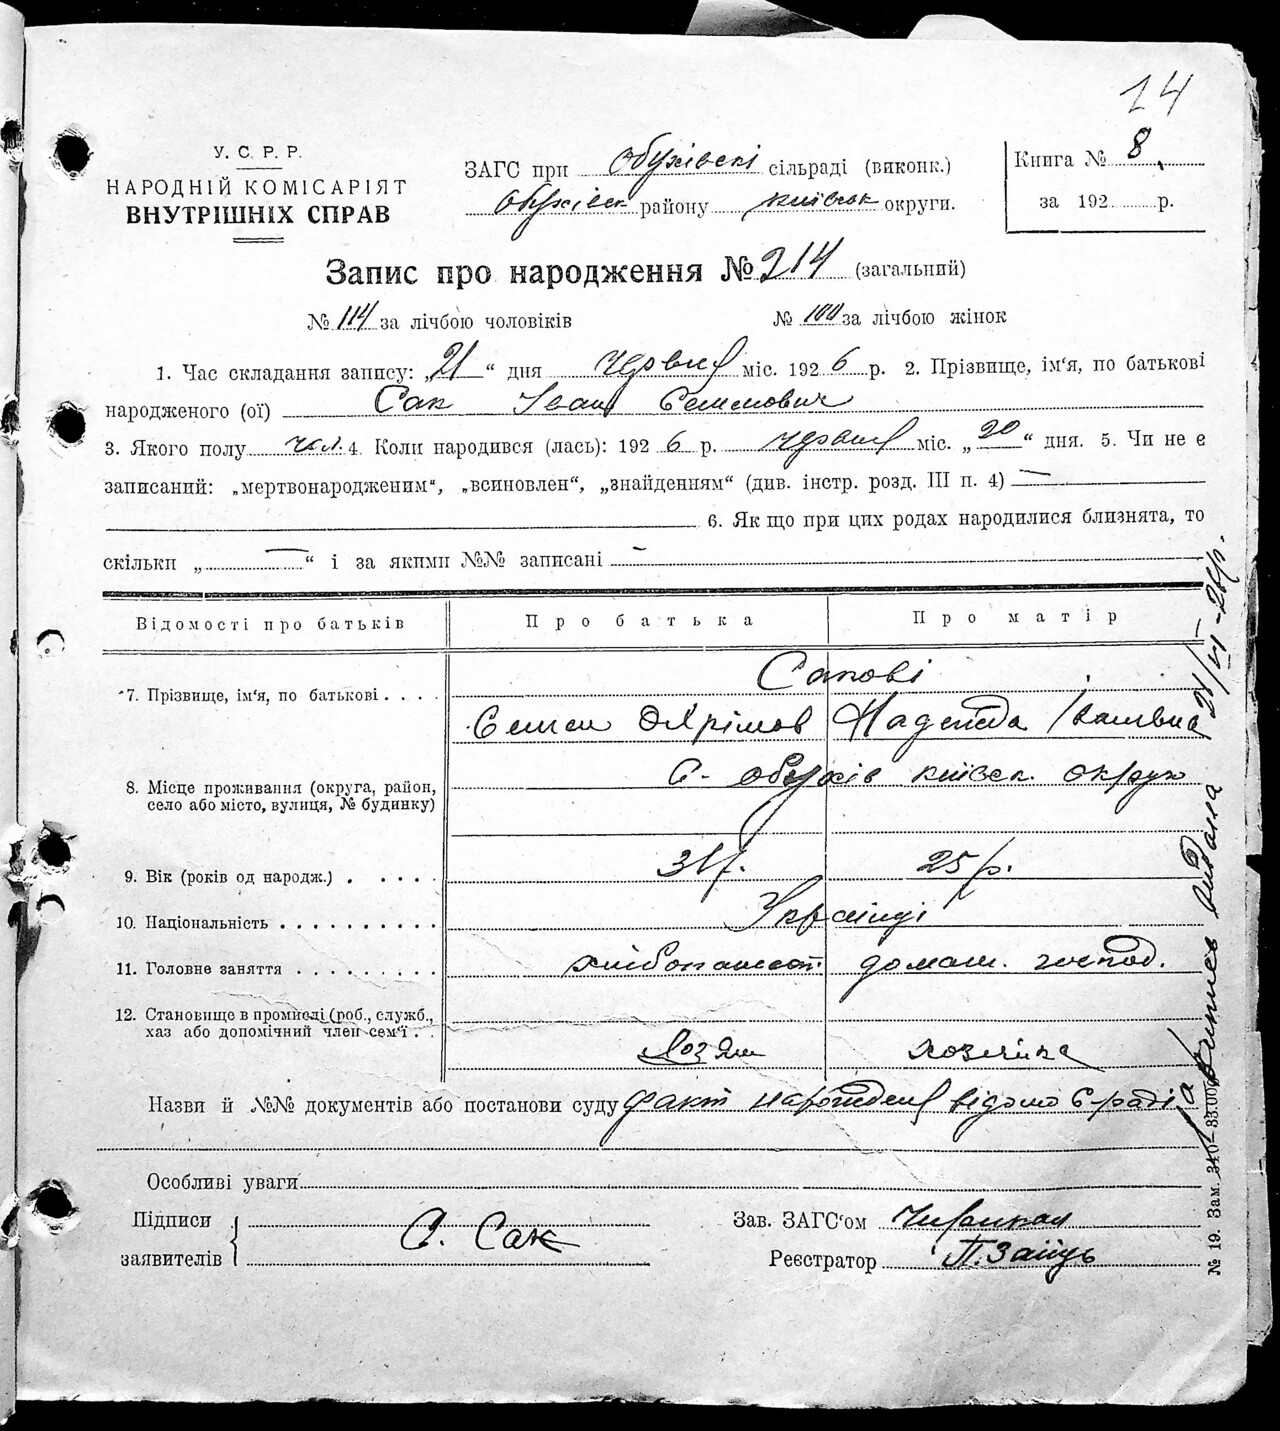 14
У. С. Р. Р.
НАРОДНІЙ КОМІСАРІЯТ
ВНУТРІШНІХ СПРАВ
ЗАГС при Обухівскі сільраді (виконк.)
Обухівск району київськ округи.
Книга № 8
за 192 р.
Запис про народження № 214 (загальний)
№ 114 за лічбою чоловіків № 100 за лічбою жінок
1. Час складання запису: „21“ дня червня міс. 1926 р. 2. Прізвище, ім‘я, по батькові
народженого (ої) Сак Іван Семенович
3. Якого полу чол. 4. Коли народився (лась): 1926 р. червня міс. „20“ дня. 5. Чи не є
записаний: „мертвонародженим“, „всиновлен“, „знайденням“ (див. інстр. розд. III п. 4) —
6. Як що при цих родах народилися близнята, то
скільки „—“ і за якими №№ записані —
Відомості про батьків Про батька Про матір
7. Прізвище, ім‘я, по батькові . . . . Сакові
Семен Охрімов Надежда Іванівна
8. Місце проживання (округа, район,
село або місто, вулиця, № будинку)
С. Обухів київск. округи
9. Вік (років од народж.) . . . . . 31 р. 25 р.
10. Національність . . . . . . . . . . Українці
11. Головне заняття . . . . . . . . . хлібопашест. домаш. господ.
12. Становище в промислі (роб., служб.,
хаз або допомічний член сем‘ї . .
Хозяін хозяйка
Назви й №№ документів або постанови суду факт народження відомо С-раді
Особливі уваги
Підписи
заявителів
С. Сак
Зав. ЗАГС‘ом
Реєстратор П. Заїць
Випись видана 21/VI-26 р.
№ 19. Зам. 310—33.000